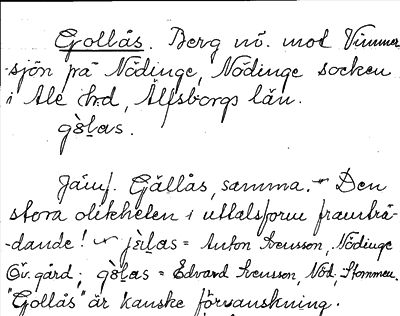 Gollås. Berg nö. mot Vimmer-
sjön på Nödinge, Nödinge socken
i Ale hrd, Älfsborgs län.
gòl̮as.
Jämf. Gällås, samma. Den
stora olikheten i uttalsform framträ-
-dande! jèl̮as = Anton Svensson, Nödinge
Öv. gård; gòl̮as = Edvard Svensson, Nöd. Stommen.
"Gollås" är kanske förvanskning.